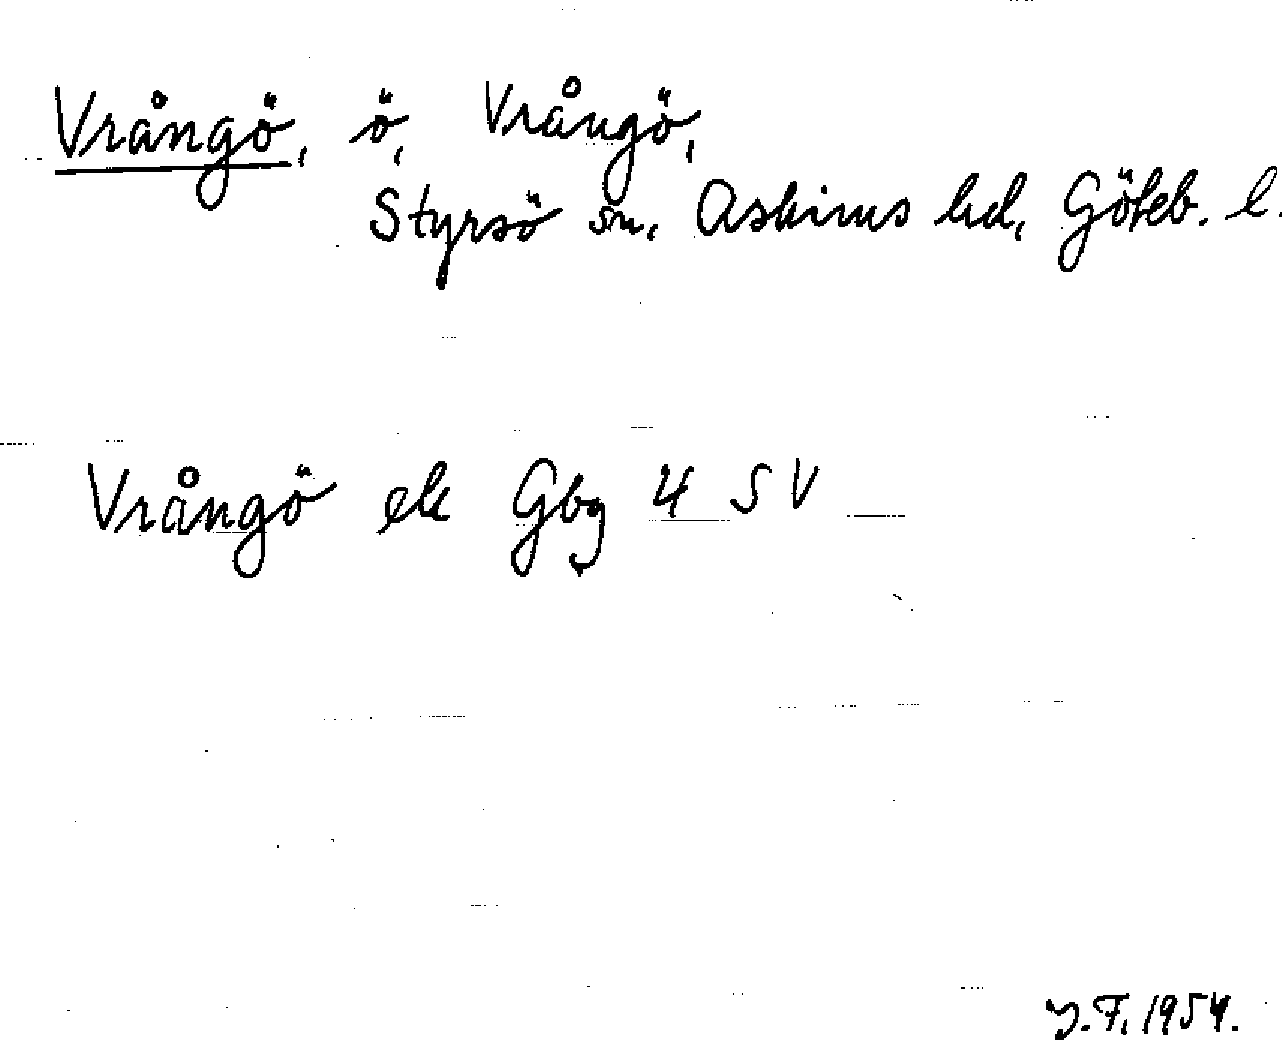 Vrångö, ö, Vrångö,
Styrsö sn, Askims hd, Göteb. l.
Vrångö ek Gbg 4 SV
J.F. 1954.